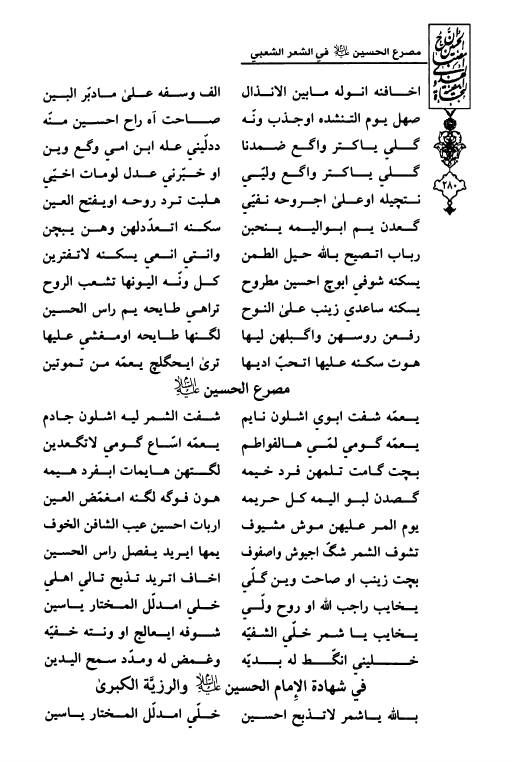 مصرع الحسين ﷺ في الشعر الشعبي
٢٨٠
اخـافنه انـوله مـابين الانـذال الف وسـفه عـلىٰ مـادبّر البـين
صهل يوم التـنشده اوجـذب ونّـه صـاحت آه راح احسـين مـنّه
گـلي يـاكـتر واگـع ضـمدنا ددلّيني عـله ابن امي وگع وين
گـلي يـاكـتر واگـع وليّـي او خـبّرني عـدل لومات اخيّي
نـتچيله اوعـلىٰ اجـروحه نـفيّي هلبت ترد روحـه اويـفتح العين
گـعدن يـم ابـواليـمه يـنحبن سكـنه اتـعدّدلهن وهـن يـبچن
رباب اتصيح بالله حيل الطـمن وانـتي انـعي يسكـنه لاتـفترين
يسكنه شوفي ابوچ احسين مطروح كـل ونّـه اليونها تشعب الروح
يسكنه ساعدي زينب علىٰ النوح تراهي طايحه يم راس الحسـين
رفـعن روسـهن واگـبلهن ليـها لگـنها طايحه اومـغشي عليها
هوت سكنه عليها اتـحبّ اديـها ترىٰ ايحگلچ يـعمّه مـن تـموتين
مصرع الحسين ﷺ
يـعمّه شفت ابوي اشلون نـايم شفت الشمر ليـه اشلون جـادم
يـعمّه گـومي لمّـي هـالفواطـم يـعمّه اسّاع گومي لاتگـعدين
بچت گامت تلمهن فرد خيمه لگـتهن هـايمات ابفرد هـيمه
گـصدن لبـو اليـمه كـل حريمه هـون فـوگه لگنه امـغمّض العين
يوم المر عليهن مـوش مشـيوف اريات احسين عيب الشافن الخوف
تشوف الشمر شگّ اجيوش واصفوف يمها ايريد يـفصل راس الحسـين
بچت زينب او صاحت وين گـلّي اخـاف اتـريد تـذبح تـالي اهـلي
يـخايب راجب الله او روح ولّـي خـلي امـدلّل المـختار يـاسين
يـخايب يـا شمر خلّي الشفيّه شـوفه ايـعالج او ونـته خـفيّه
خـليني انگـط له بـديّه وغـمض له ومـدّد سمح اليدين
في شهادة الإمام الحسين ﷺ والرزيّة الكبرىٰ
بـالله يـاشمر لاتـذبح احسـين خـلّي امـدلّل المـختار يـاسين